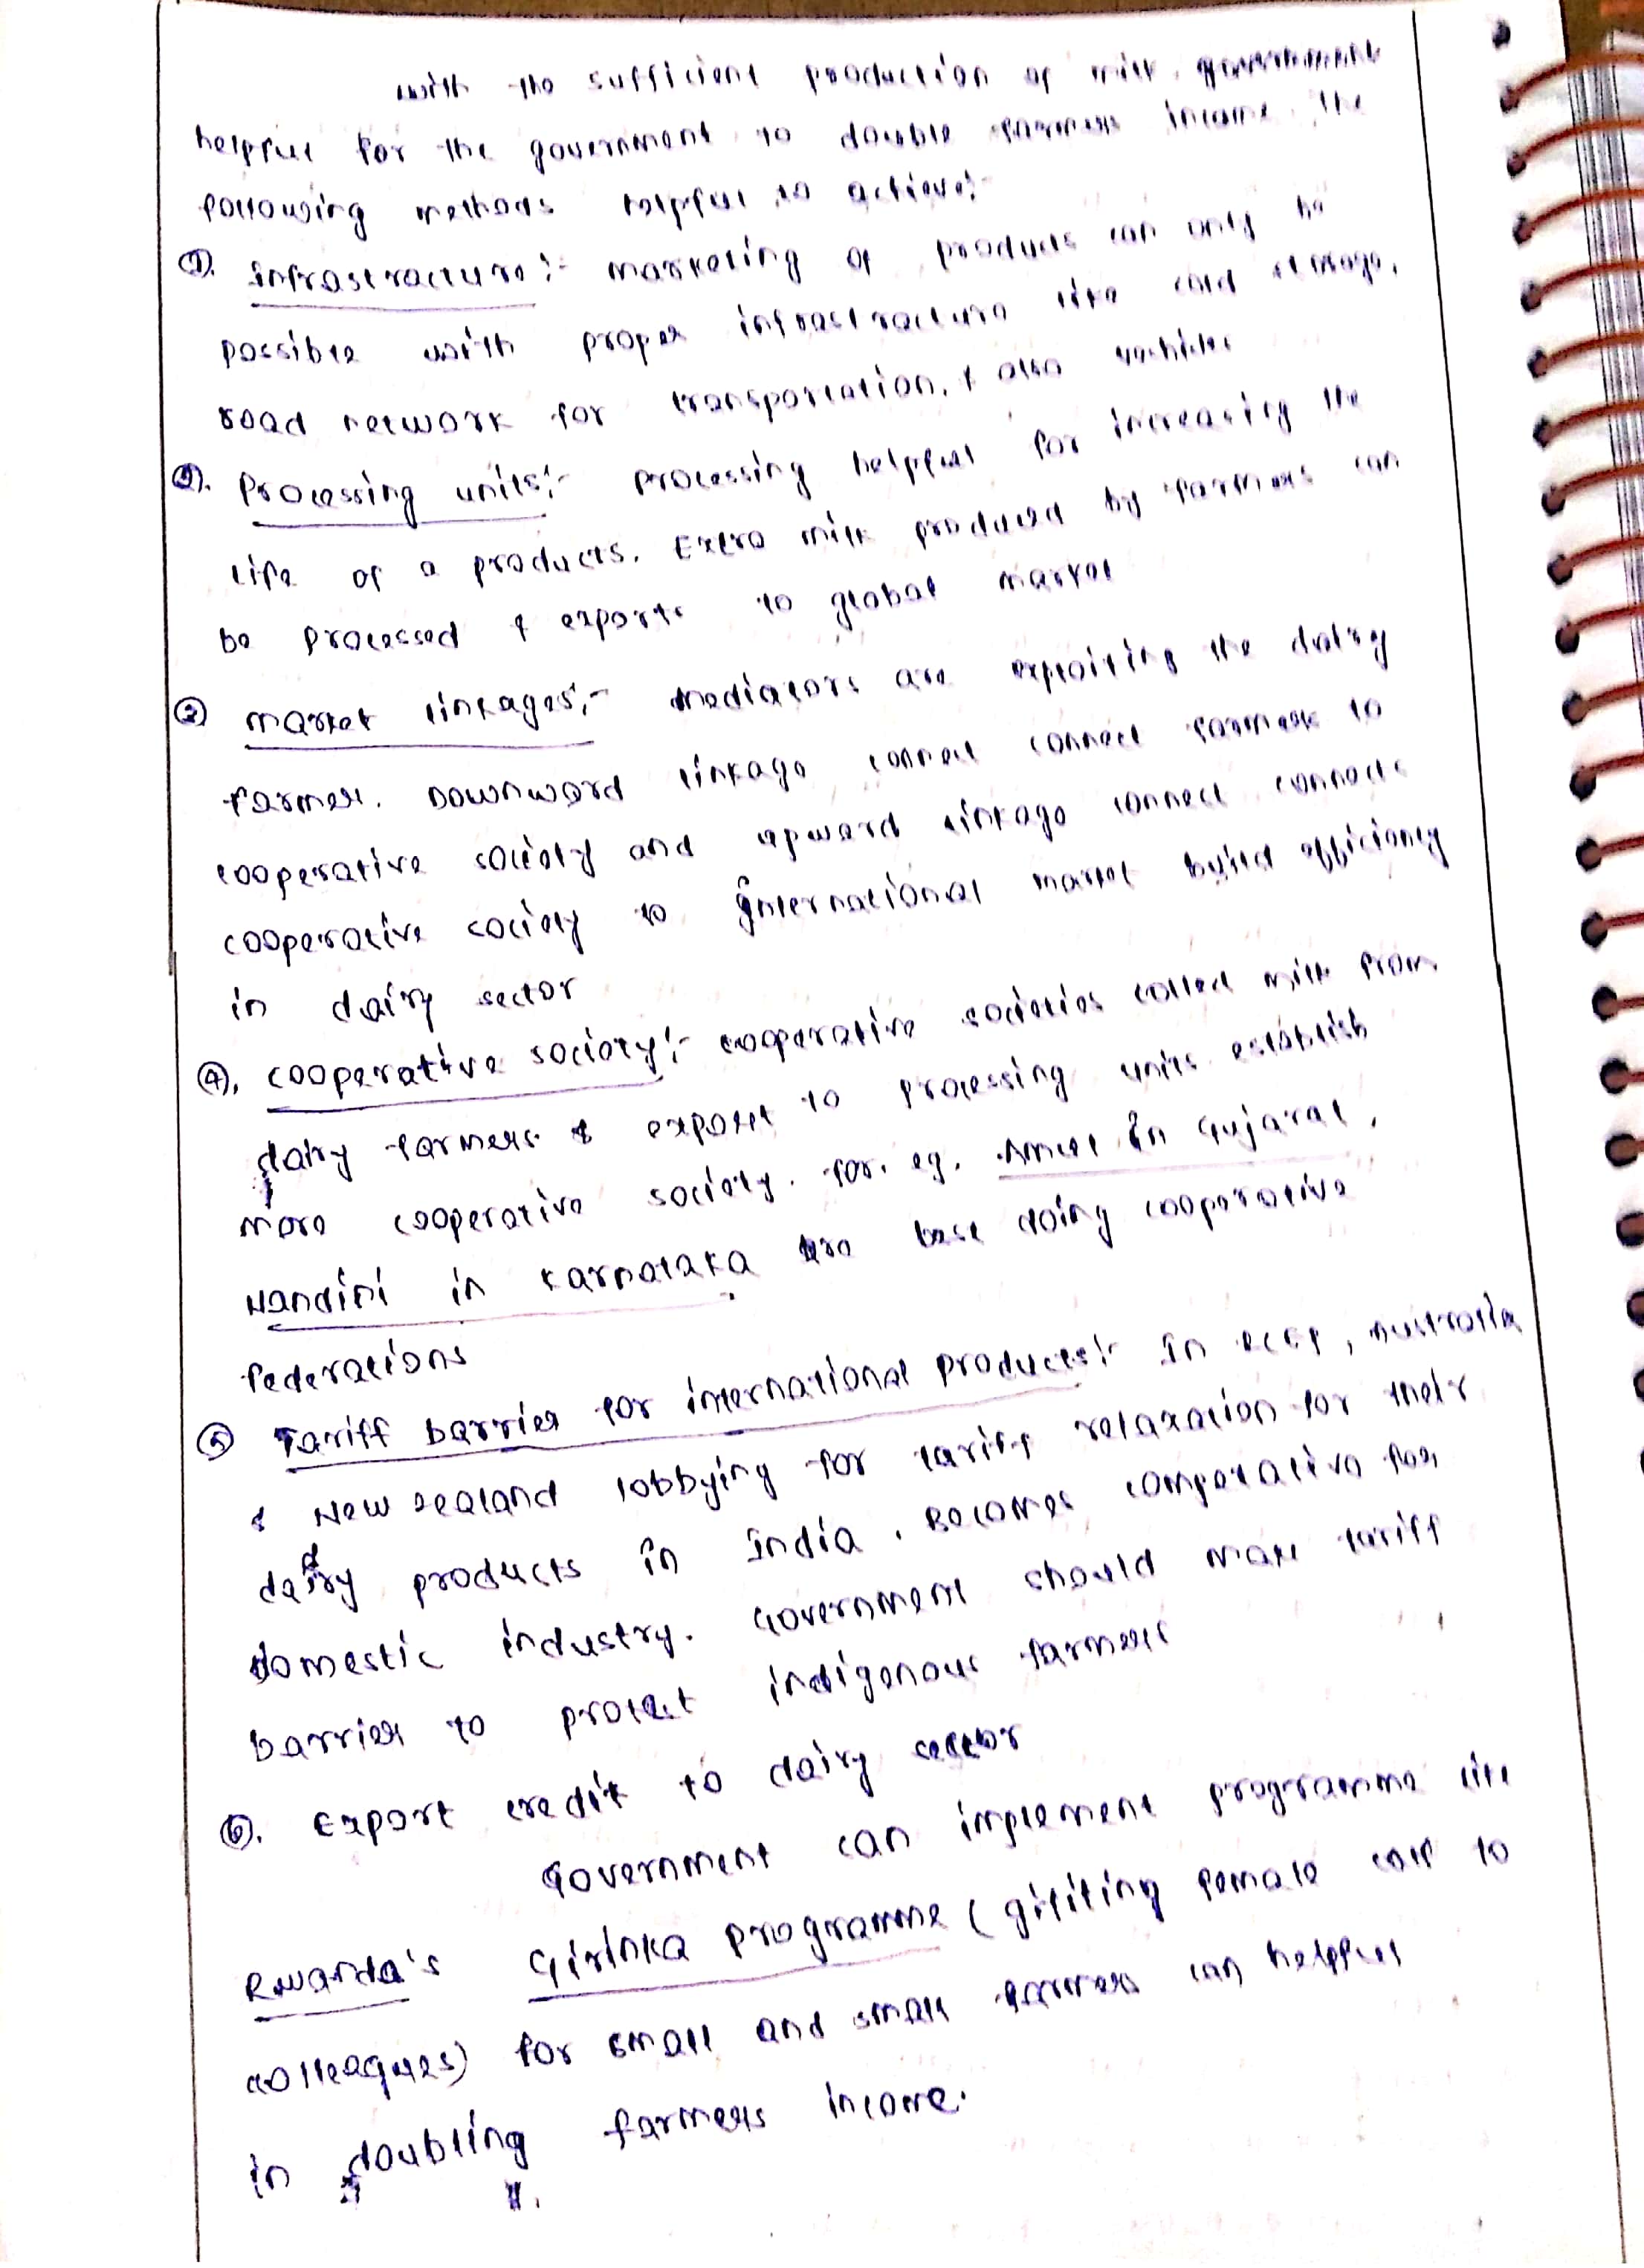 with the sufficient production of milk, government
helpful for the government to double farmers income. The
following methods helpful to achieve:-
①. infrastructure:- marketing of products can only be
possible with proper infrastructure like cold storage,
road network for transportation. & also vehicles
②. Processing units:- processing helpful for increasing the
life of a products. Extra milk produced by farmers can
be processed & exports to global market
③ market linkages:- mediators are exploiting the dairy
farmer. Downward linkage connect connect farmers to
cooperative society and upward linkage connect connects
cooperative society to international market build efficiency
in dairy sector
④. cooperative society:- cooperative societies collect milk from
dairy farmers & export to processing units. establish
more cooperative society. for. eg. Amul in Gujarat,
Nandini in Karnataka are best doing cooperative
federations
⑤ Tariff barrier for international products:- In RCEP, Australia
& New zealand lobbying for tariff relaxation for their
dairy products in India. Becomes comparative for
domestic industry. Government should make tariff
barrier to protect indigenous farmers
⑥. Export credit to dairy sector
Government can implement programme like
Rwanda's Girinka programme (gifiting female calf to
colleagues) for small and small farmers can helpful
in doubling farmers income.